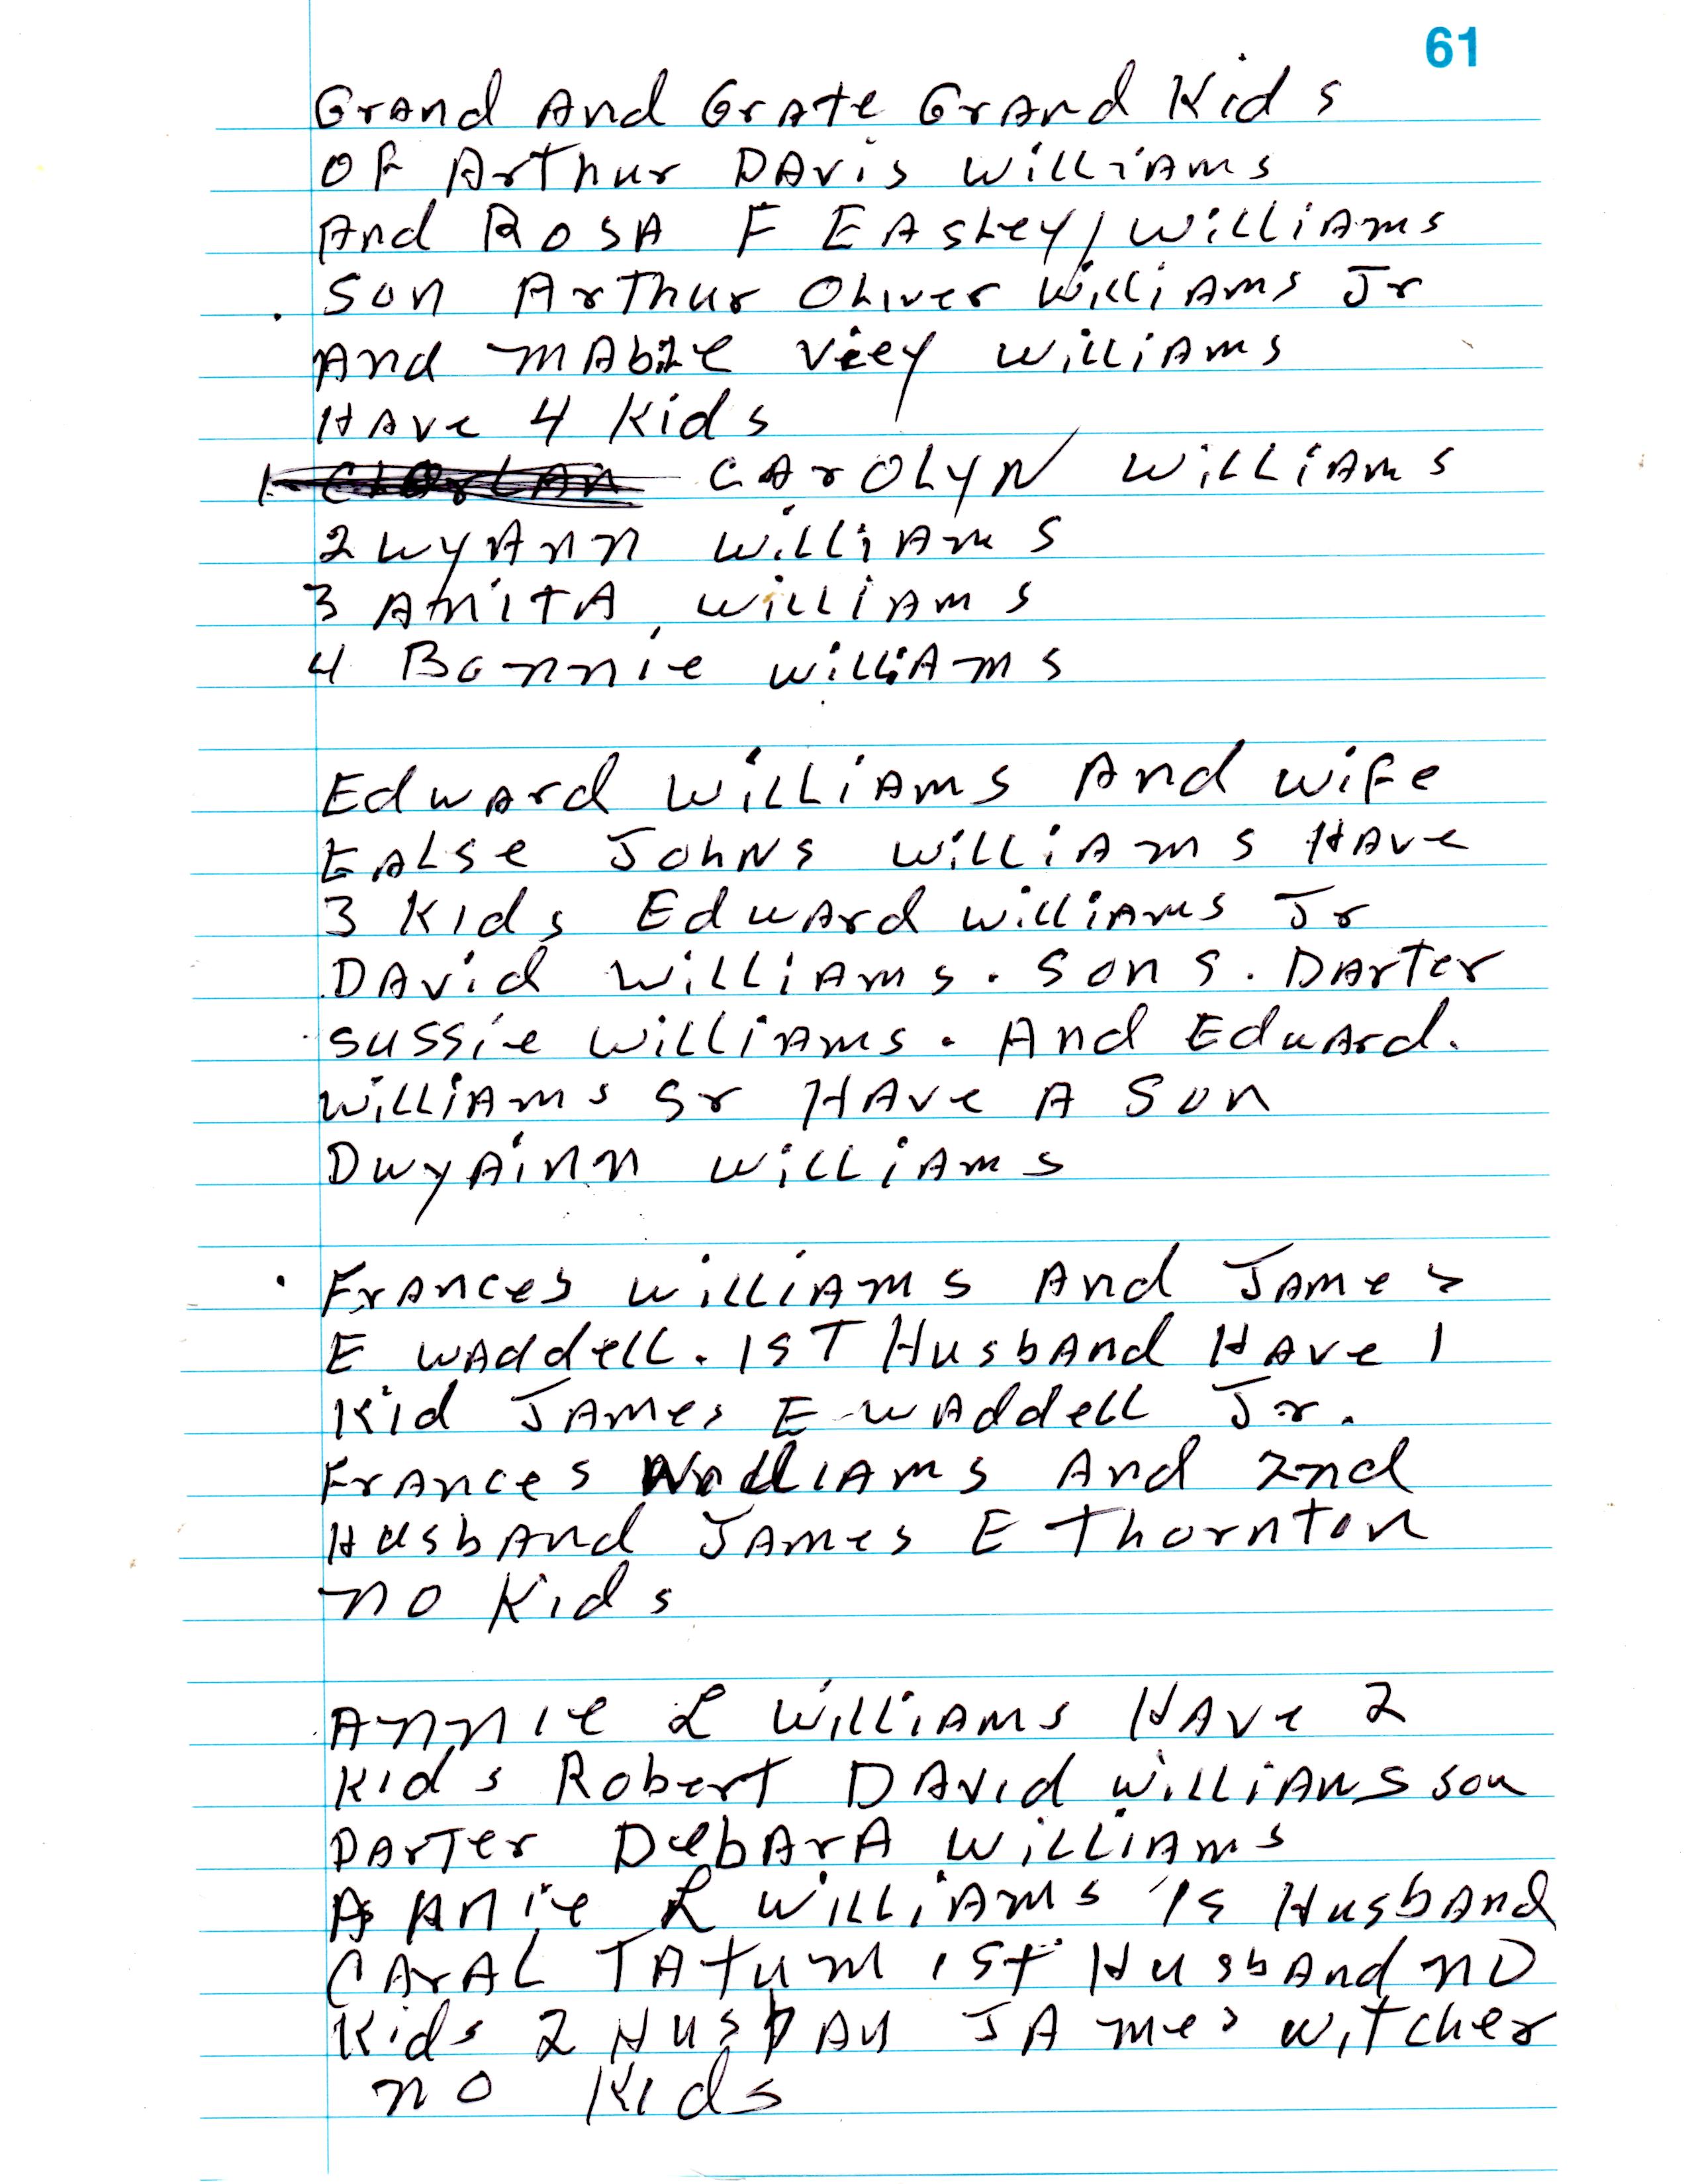 61
Grand And Grate Grand Kids
OF Arthur DAvis Williams
And ROSA F EASLey/Williams
Son Arthur Oliver Williams Jr
And Mable Viey Williams
HAve 4 Kids
1 CAROLYN Williams
2 WyAnn Williams
3 ANITA Williams
4 Bonnie Williams
Edward Williams And wife
EALse Johns Williams HAve
3 Kids Edward Williams Jr
DAvid Williams. Sons. DArter
Sussie Williams. And Edward.
Williams Sr HAve A Son
DwyAinn Williams
Frances Williams And James
E WAddell. 1ST Husband HAve 1
Kid James E WAddell Jr.
Frances Williams And 2nd
Husband James E Thornton
no Kids
Annie L Williams HAve 2
Kids Robert DAvid Williams son
DArter DebArA Williams
Annie L Williams 1s Husband
CArAL TAtum 1st Husband no
Kids 2 Husban JAmes Witcher
no Kids